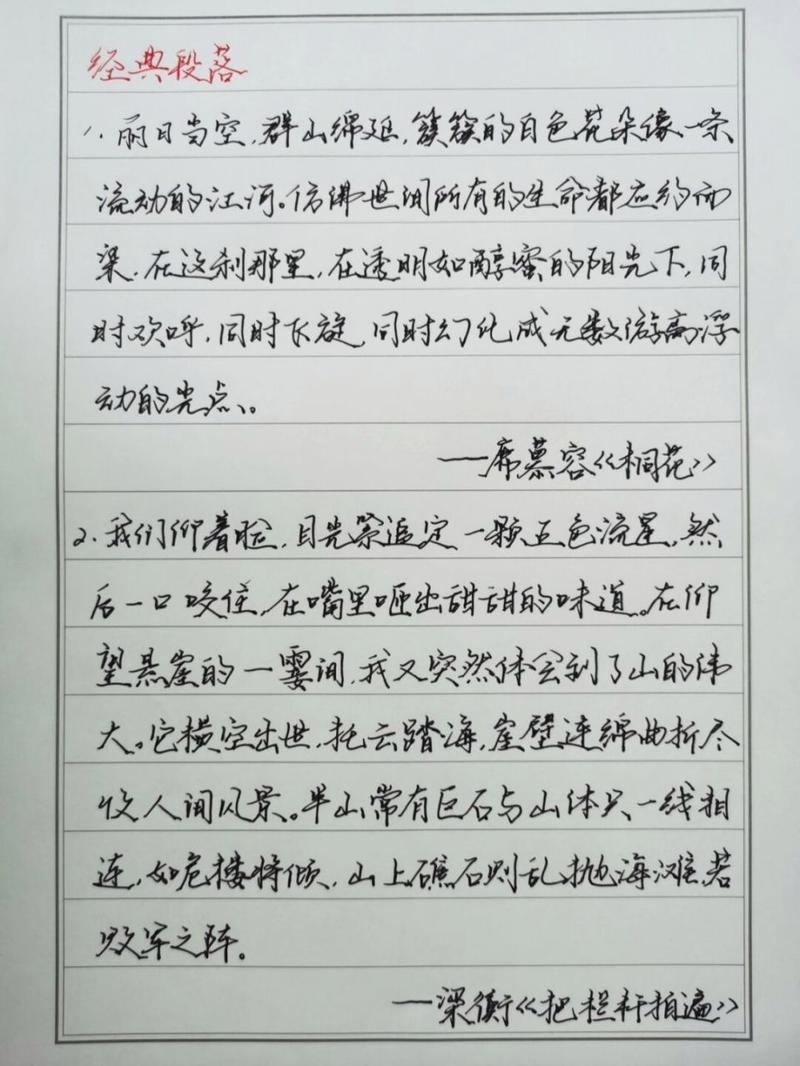 经典段落
1、丽日当空,群山绵延,簇簇的白色花朵像一条
流动的江河。仿佛世间所有的生命都应约而
来,在这刹那里,在透明如醇蜜的阳光下,同
时欢呼,同时飞旋,同时幻化成无数游离浮
动的光点。
——席慕容《桐花》
2、我们仰着脸,目光紧追定一颗五色流星,然
后一口咬住,在嘴里咂出甜甜的味道。在仰
望悬崖的一霎间,我又突然体会到了山的伟
大。它横空出世,托云踏海,崖壁连绵曲折尽
收人间风景。半山常有巨石与山体只一线相
连,如危楼将倾,山上礁石则乱抛海滩,若
败军之阵。
——梁衡《把栏杆拍遍》